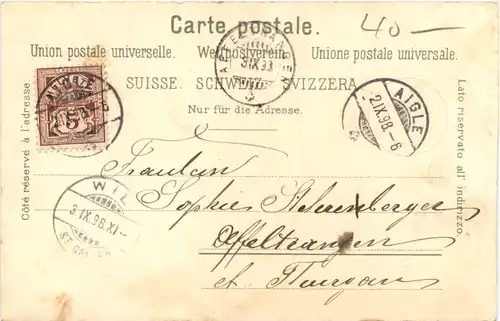 Carte postale.
40-
Union postale universelle. Weltpostverein. Unione postale universale.
SUISSE. SCHWEIZ. SVIZZERA.
Nur für die Adresse.
Côté réservé à l'adresse.
Lato riservato all' indirizzo.
AIGLE
2 IX 98 - 6
AIGLE
5
WIL
3. IX. 98. XI -
Fräulein
Sophie
Affeltrangen
ct. Thurgau